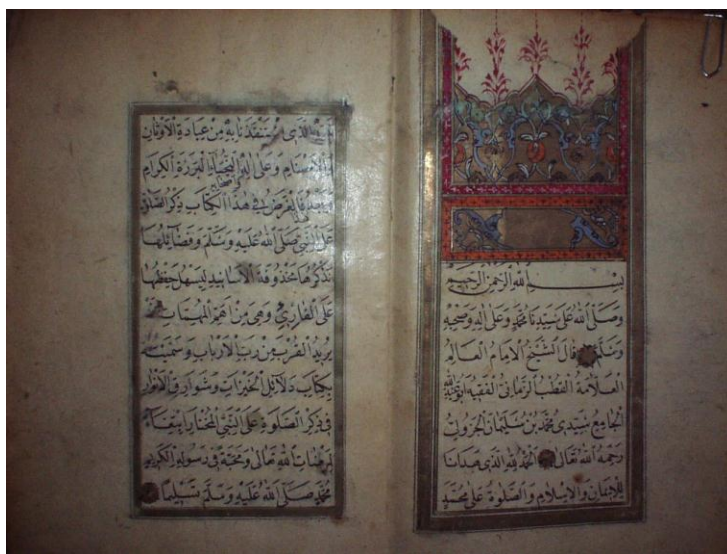 بِسْمِ اللهِ الرَّحْمٰنِ الرَّحِيمِ
وَصَلَّى اللهُ عَلَى سَيِّدِنَا مُحَمَّدٍ وَعَلَى اٰلِهِ وَصَحْبِهِ
وَسَلَّمَ قَالَ الشَّيْخُ الْاِمَامُ الْعَالِمُ
الْعَلَّامَةُ الْقُطْبُ الرَّبَّانِيُّ الْفَقِيهُ اَبُو عَبْدِ اللهِ
الْجَامِعُ سَيِّدِي مُحَمَّدُ بْنُ سُلَيْمَانَ الْجَزُولِيُّ
رَحِمَهُ اللهُ تَعَالٰى اَلْحَمْدُ لِلّٰهِ الَّذِي هَدَانَا
لِلْاِيمَانِ وَالْاِسْلَامِ وَالصَّلٰوةُ عَلٰى مُحَمَّدٍ
الَّذِى اسْتَنْقَذَنَا بِهِ مِنْ عِبَادَةِ الْاَوْثَانِ
وَالْاَصْنَامِ وَعَلٰى اٰلِهِ النُّجَبَاءِ الْبَرَرَةِ الْكِرَامِ
فَالْغَرَضُ فِي هٰذَا الْكِتَابِ ذِكْرُ الصَّلٰوةِ
عَلَى النَّبِيِّ صَلَّى اللهُ عَلَيْهِ وَسَلَّمَ وَفَضَائِلِهَا
نَذْكُرُهَا مَحْذُوفَةَ الْاَسَانِيدِ لِيَسْهُلَ حِفْظُهَا
عَلَى الْقَارِئِ وَهِيَ مِنْ اَهَمِّ الْمُهِمَّاتِ
يُرِيدُ الْقُرْبَ مِنْ رَبِّ الْاَرْبَابِ وَسَمَّيْتُهُ
بِكِتَابِ دَلَآئِلِ الْخَيْرَاتِ وَشَوَارِقِ الْاَنْوَارِ
فِي ذِكْرِ الصَّلٰوةِ عَلَى النَّبِيِّ الْمُخْتَارِ ابْتِغَآءً
لِمَرْضَاتِ اللهِ تَعَالٰى وَمَحَبَّةً فِي رَسُولِهِ الْكَرِيمِ
مُحَمَّدٍ صَلَّى اللهُ عَلَيْهِ وَسَلَّمَ تَسْلِيمًا